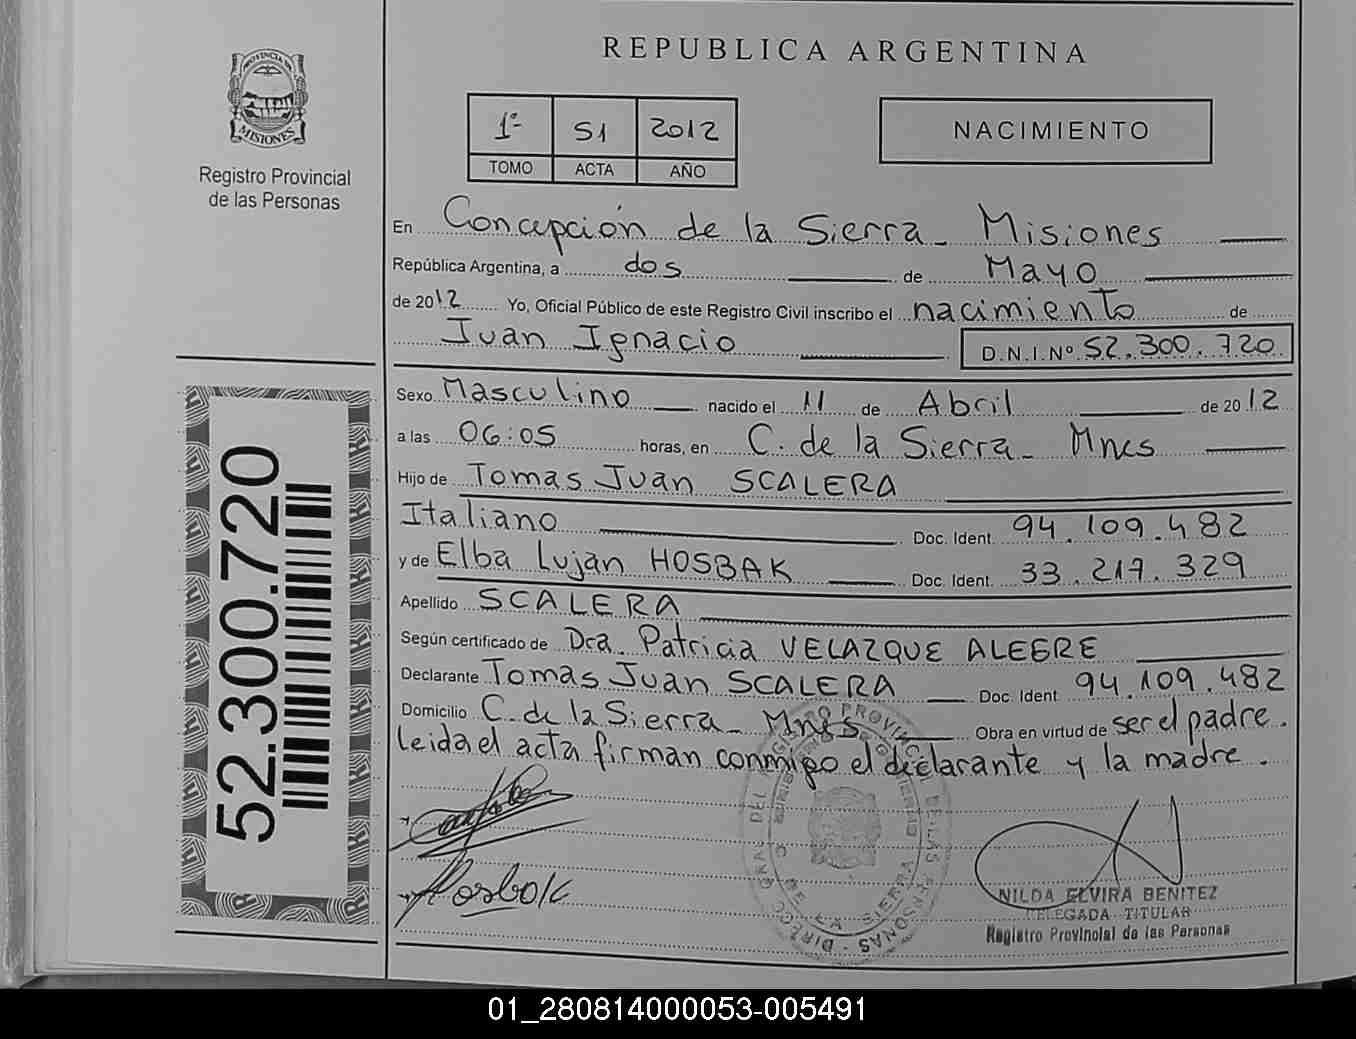 PROVINCIA DE
MISIONES
Registro Provincial
de las Personas
REPUBLICA ARGENTINA
1º 51 2012
TOMO ACTA AÑO
NACIMIENTO
En Concepción de la Sierra - Misiones
República Argentina, a dos de Mayo
de 2012 Yo, Oficial Público de este Registro Civil inscribo el nacimiento de
Juan Ignacio D.N.I.Nº 52.300.720
Sexo Masculino nacido el 11 de Abril de 2012
a las 06:05 horas, en C. de la Sierra - Mnes
Hijo de Tomas Juan SCALERA
Italiano Doc. Ident. 94.109.482
y de Elba Lujan HOSBAK Doc. Ident. 33.217.329
Apellido SCALERA
Según certificado de Dra. Patricia VELAZQUE ALEGRE
Declarante Tomas Juan SCALERA Doc. Ident 94.109.482
Domicilio C. de la Sierra - Mnes Obra en virtud de ser el padre.
leida el acta firman conmigo el declarante y la madre.
Hosbak
NILDA ELVIRA BENITEZ
DELEGADA TITULAR
Registro Provincial de las Personas
52.300.720
01_280814000053-005491